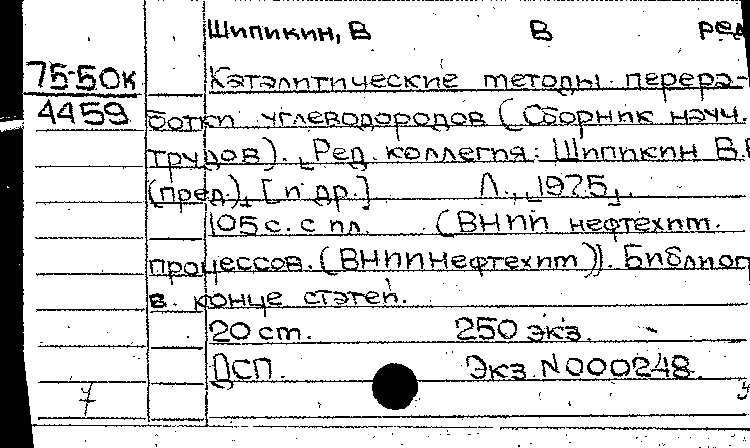 Шипикин, В В ред
75-50к Каталитические методы перера-
4459 ботки углеводородов (Сборник науч.
трудов). Ред. коллегия: Шипикин В.В
(пред.), [и др.] Л., 1975.
105 с. с ил. (ВНИИ нефтехим.
процессов. (ВНИИНефтехим)). Библиог
в конце статей.
20 ст. 250 экз.
ДСП. Экз. N000248.
7